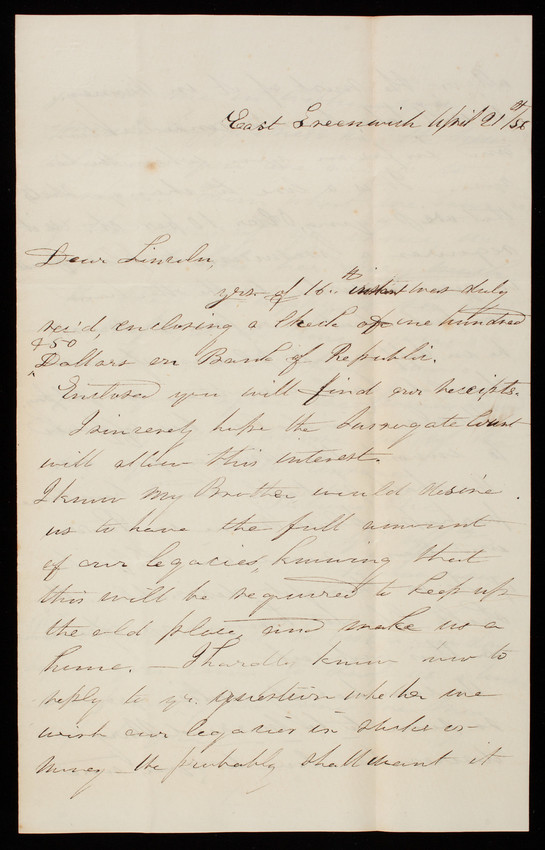 East Greenwich April 21st/88
Dear Lincoln,
yrs. of 16th instant was duly
rec'd, enclosing a Check of one hundred
& 50
Dollars on Bank of Republic.
Enclosed you will find our receipts.
I sincerely hope the Surrogate Court
will allow this interest.
I know my Brother would desire
us to have the full amount
of our legacies, knowing that
this will be required to keep up
the old place, and make us a
home. — I hardly know how to
reply to yr. question whether we
wish our legacies in stocks or
money — We probably shall want it